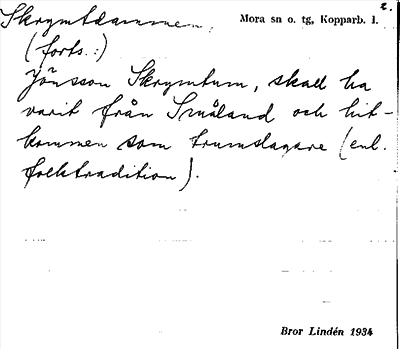 2.
Skrymtdammen, Mora sn o. tg, Kopparb. l.
(forts.:)
Jönsson Skrymtum, skall ha
varit från Småland och hit-
kommen som trumslagare (enl.
folktradition).
Bror Lindén 1934